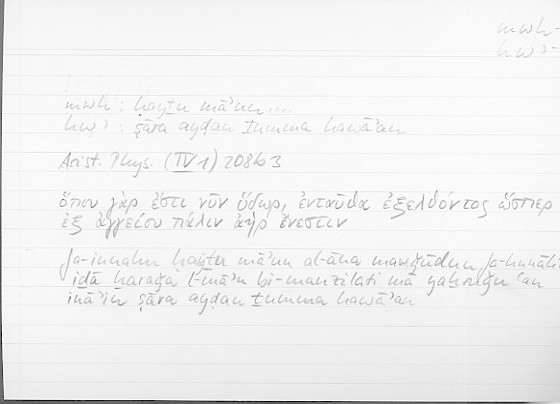 mwh-
hwʾ-
mwh : ḥayṯu māʾun....
hwʾ : ṣāra ayḍan ṯumma hawāʾan
Arist. Phys. (IV 1) 208b3
ὅπου γὰρ ἔστι νῦν ὕδωρ, ἐνταῦθα ἐξελθόντος ὥσπερ
ἐξ ἀγγείου πάλιν ἀὴρ ἔνεστιν
fa-innahu ḥayṯu māʾun al-āna mawǧūdun fa-hunāk
iḏā ḫaraǧa l-māʾu bi-manzilati mā yaḫruǧu ʿan
ināʾin ṣāra ayḍan ṯumma hawāʾan